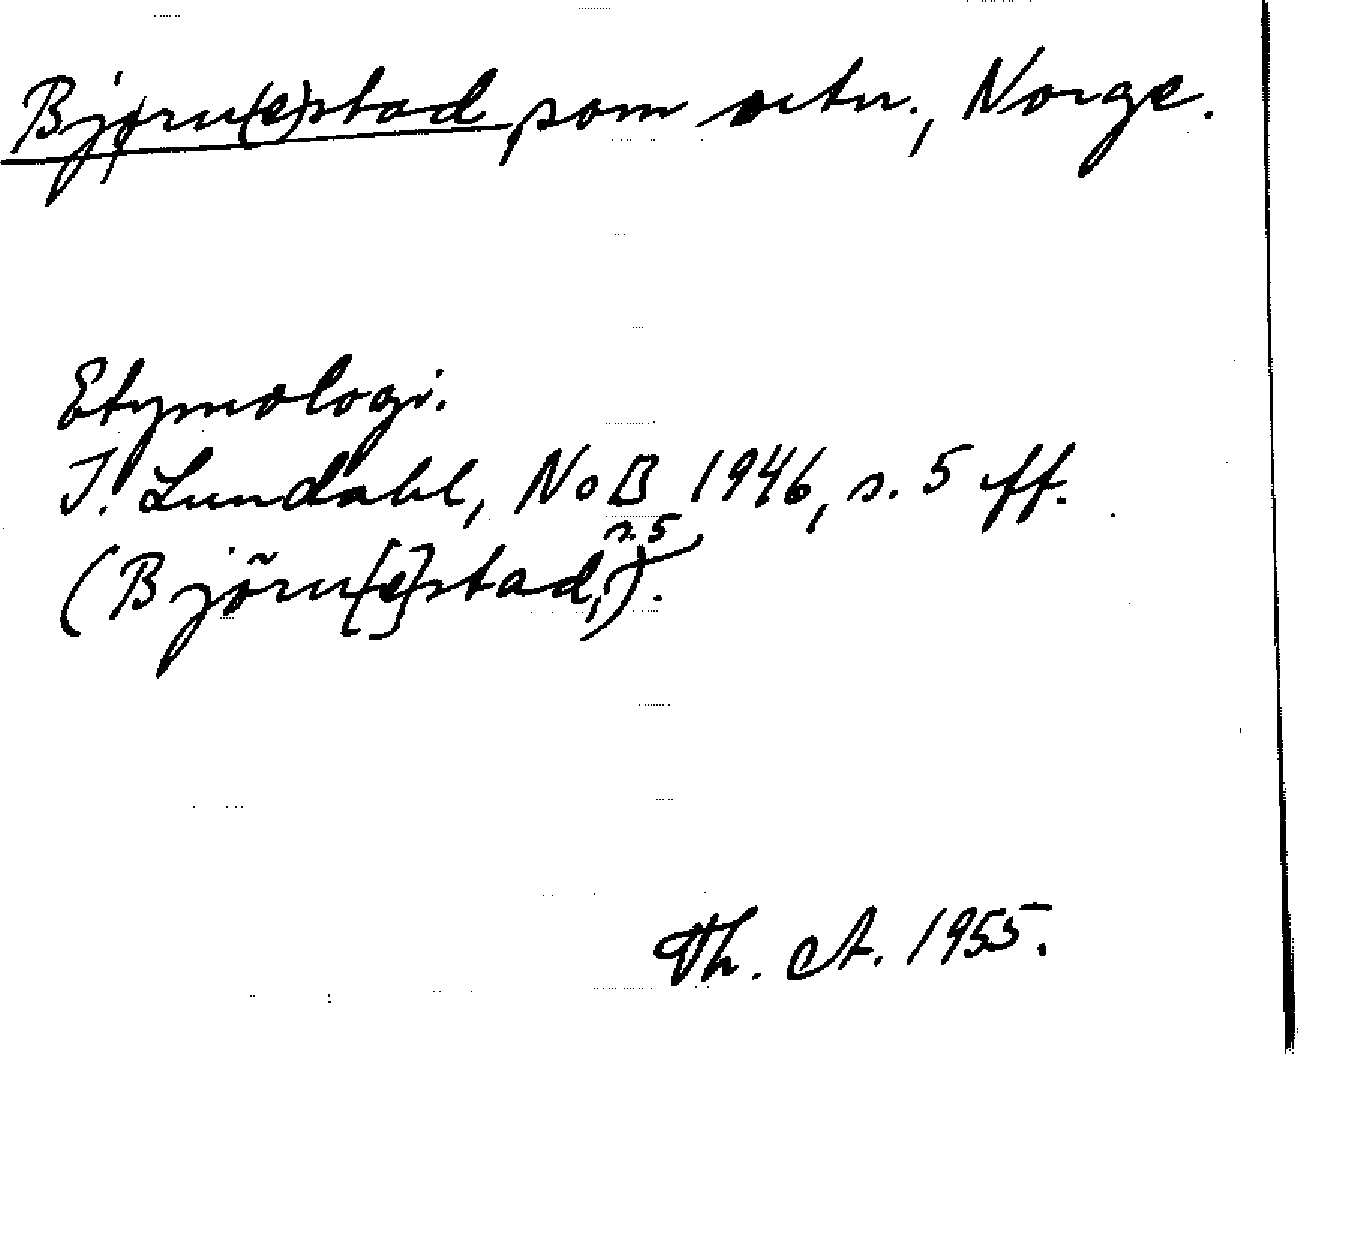 Bjørn(e)stad som ortn., Norge.
Etymologi.
I. Lundahl, NoB 1946, s. 5 ff.
(Björn[e]stad, s. 5).
Th. A. 1955.